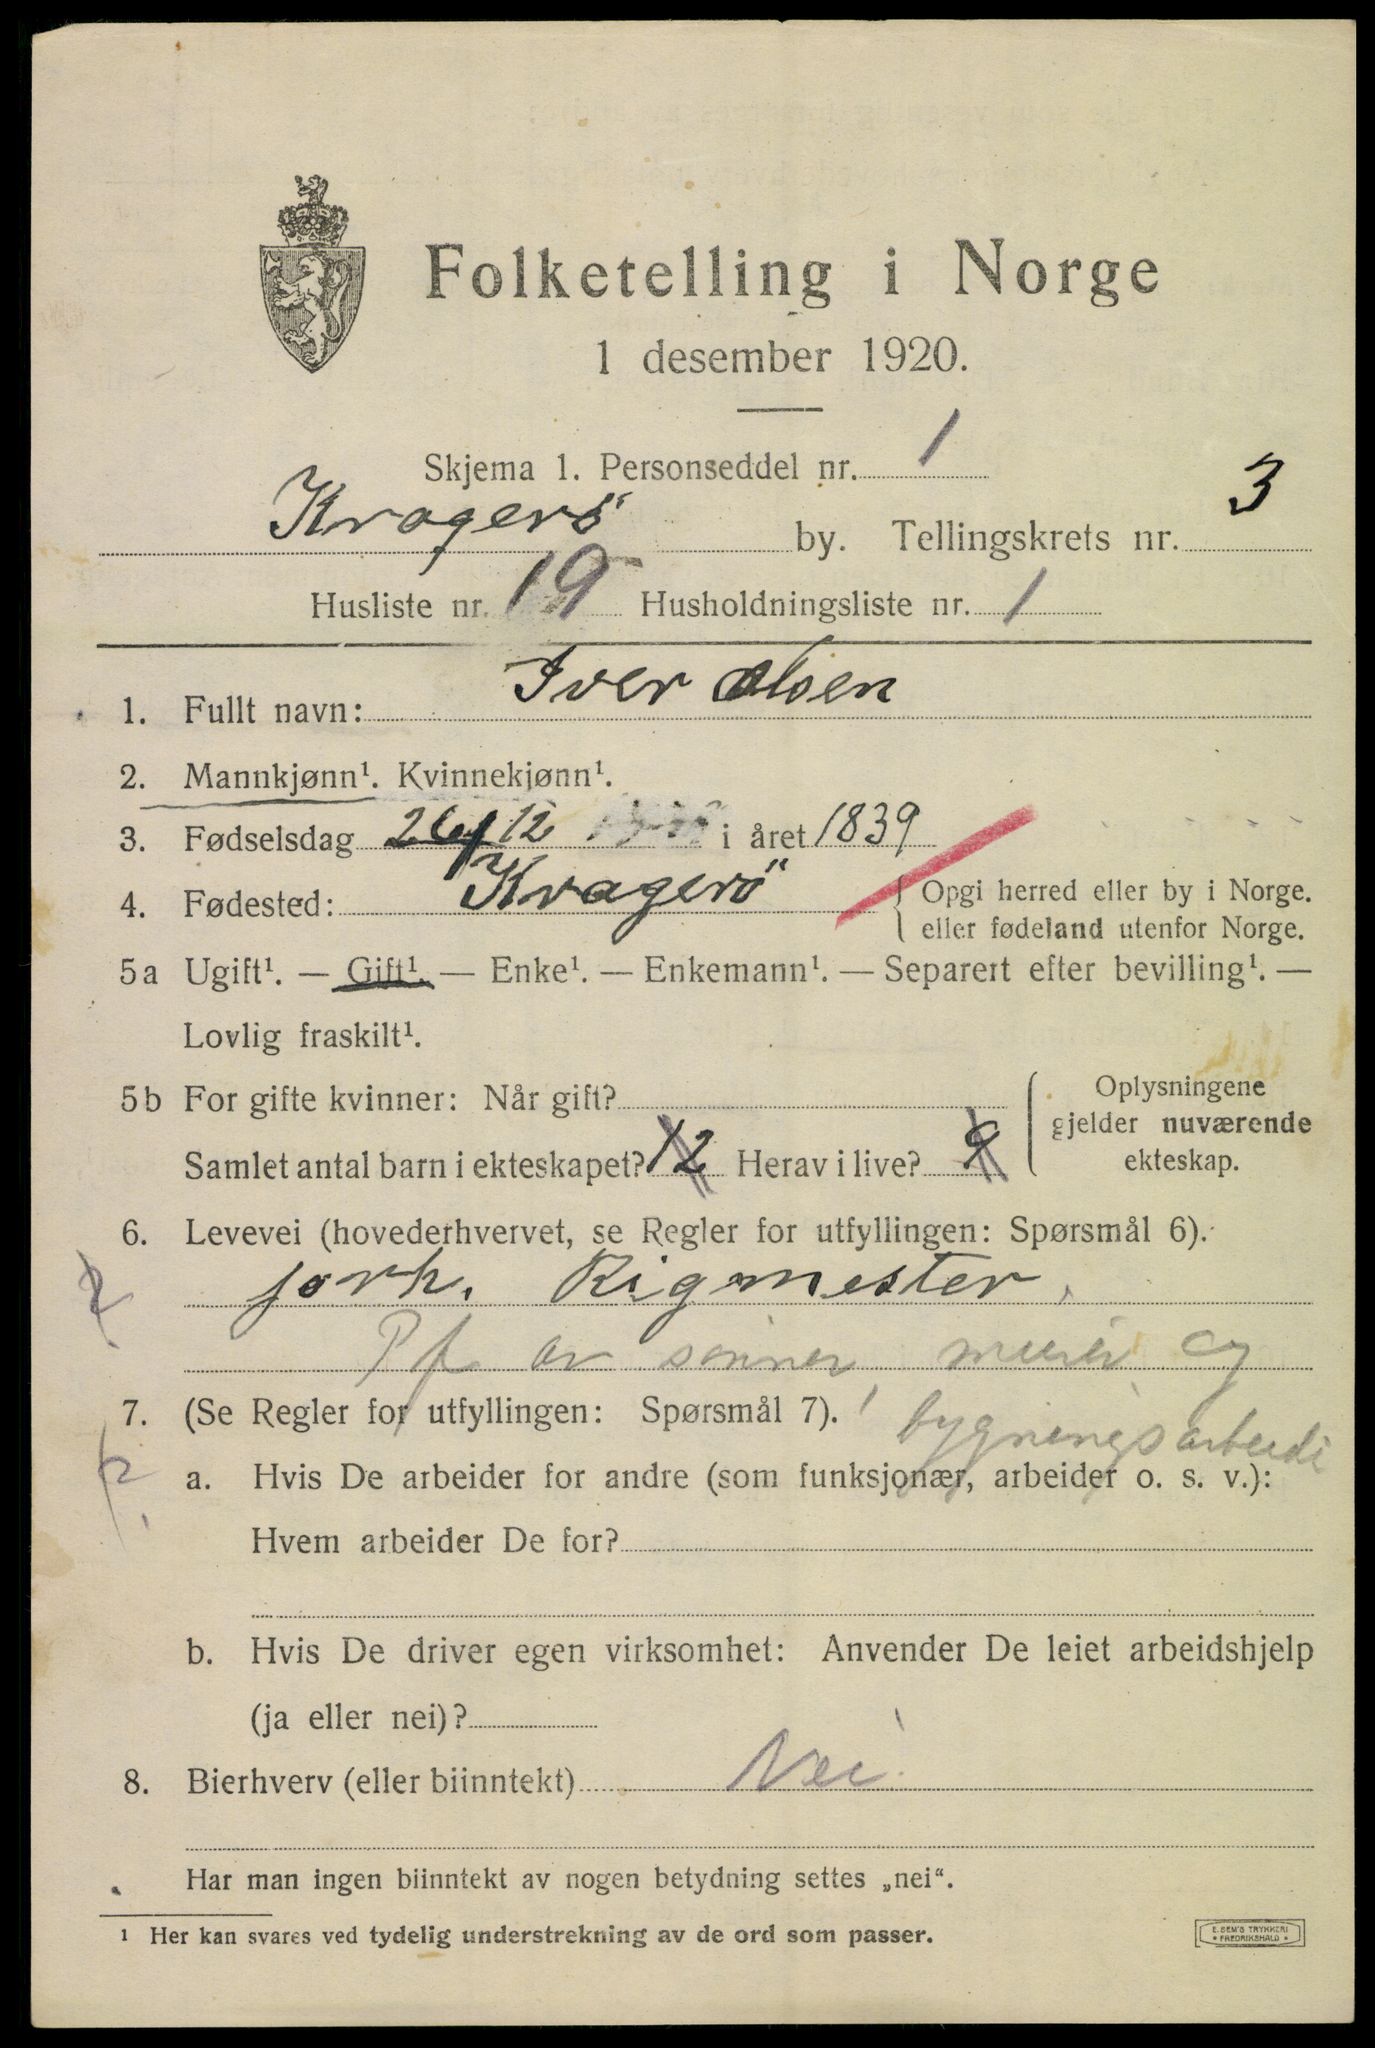 Folketelling i Norge
1 desember 1920.
Skjema 1. Personseddel nr. 1
Kragerö by. Tellingskrets nr. 3
Husliste nr. 19 Husholdningsliste nr. 1
1. Fullt navn: Iver Olsen
2. Mannkjønn¹. Kvinnekjønn¹.
3. Fødselsdag 26/12 i året 1839
4. Fødested: Kragerö { Opgi herred eller by i Norge.
eller fødeland utenfor Norge.
5a Ugift¹. — Gift¹. — Enke¹. — Enkemann¹. — Separert efter bevilling¹. —
Lovlig fraskilt¹.
5b For gifte kvinner: Når gift?
Samlet antal barn i ekteskapet? 12 Herav i live? 9
Oplysningene
gjelder nuværende
ekteskap.
6. Levevei (hovederhvervet, se Regler for utfyllingen: Spørsmål 6).
forh. Rigmester,
Pf av sønner, murer og
bygningsarbeide
7. (Se Regler for utfyllingen: Spørsmål 7).
a. Hvis De arbeider for andre (som funksjonær, arbeider o. s. v.):
Hvem arbeider De for?
b. Hvis De driver egen virksomhet: Anvender De leiet arbeidshjelp
(ja eller nei)?
8. Bierhverv (eller biinntekt) Nei
Har man ingen biinntekt av nogen betydning settes „nei“.
¹ Her kan svares ved tydelig understrekning av de ord som passer.
E. SEM'S TRYKKERI
FREDRIKSHALD